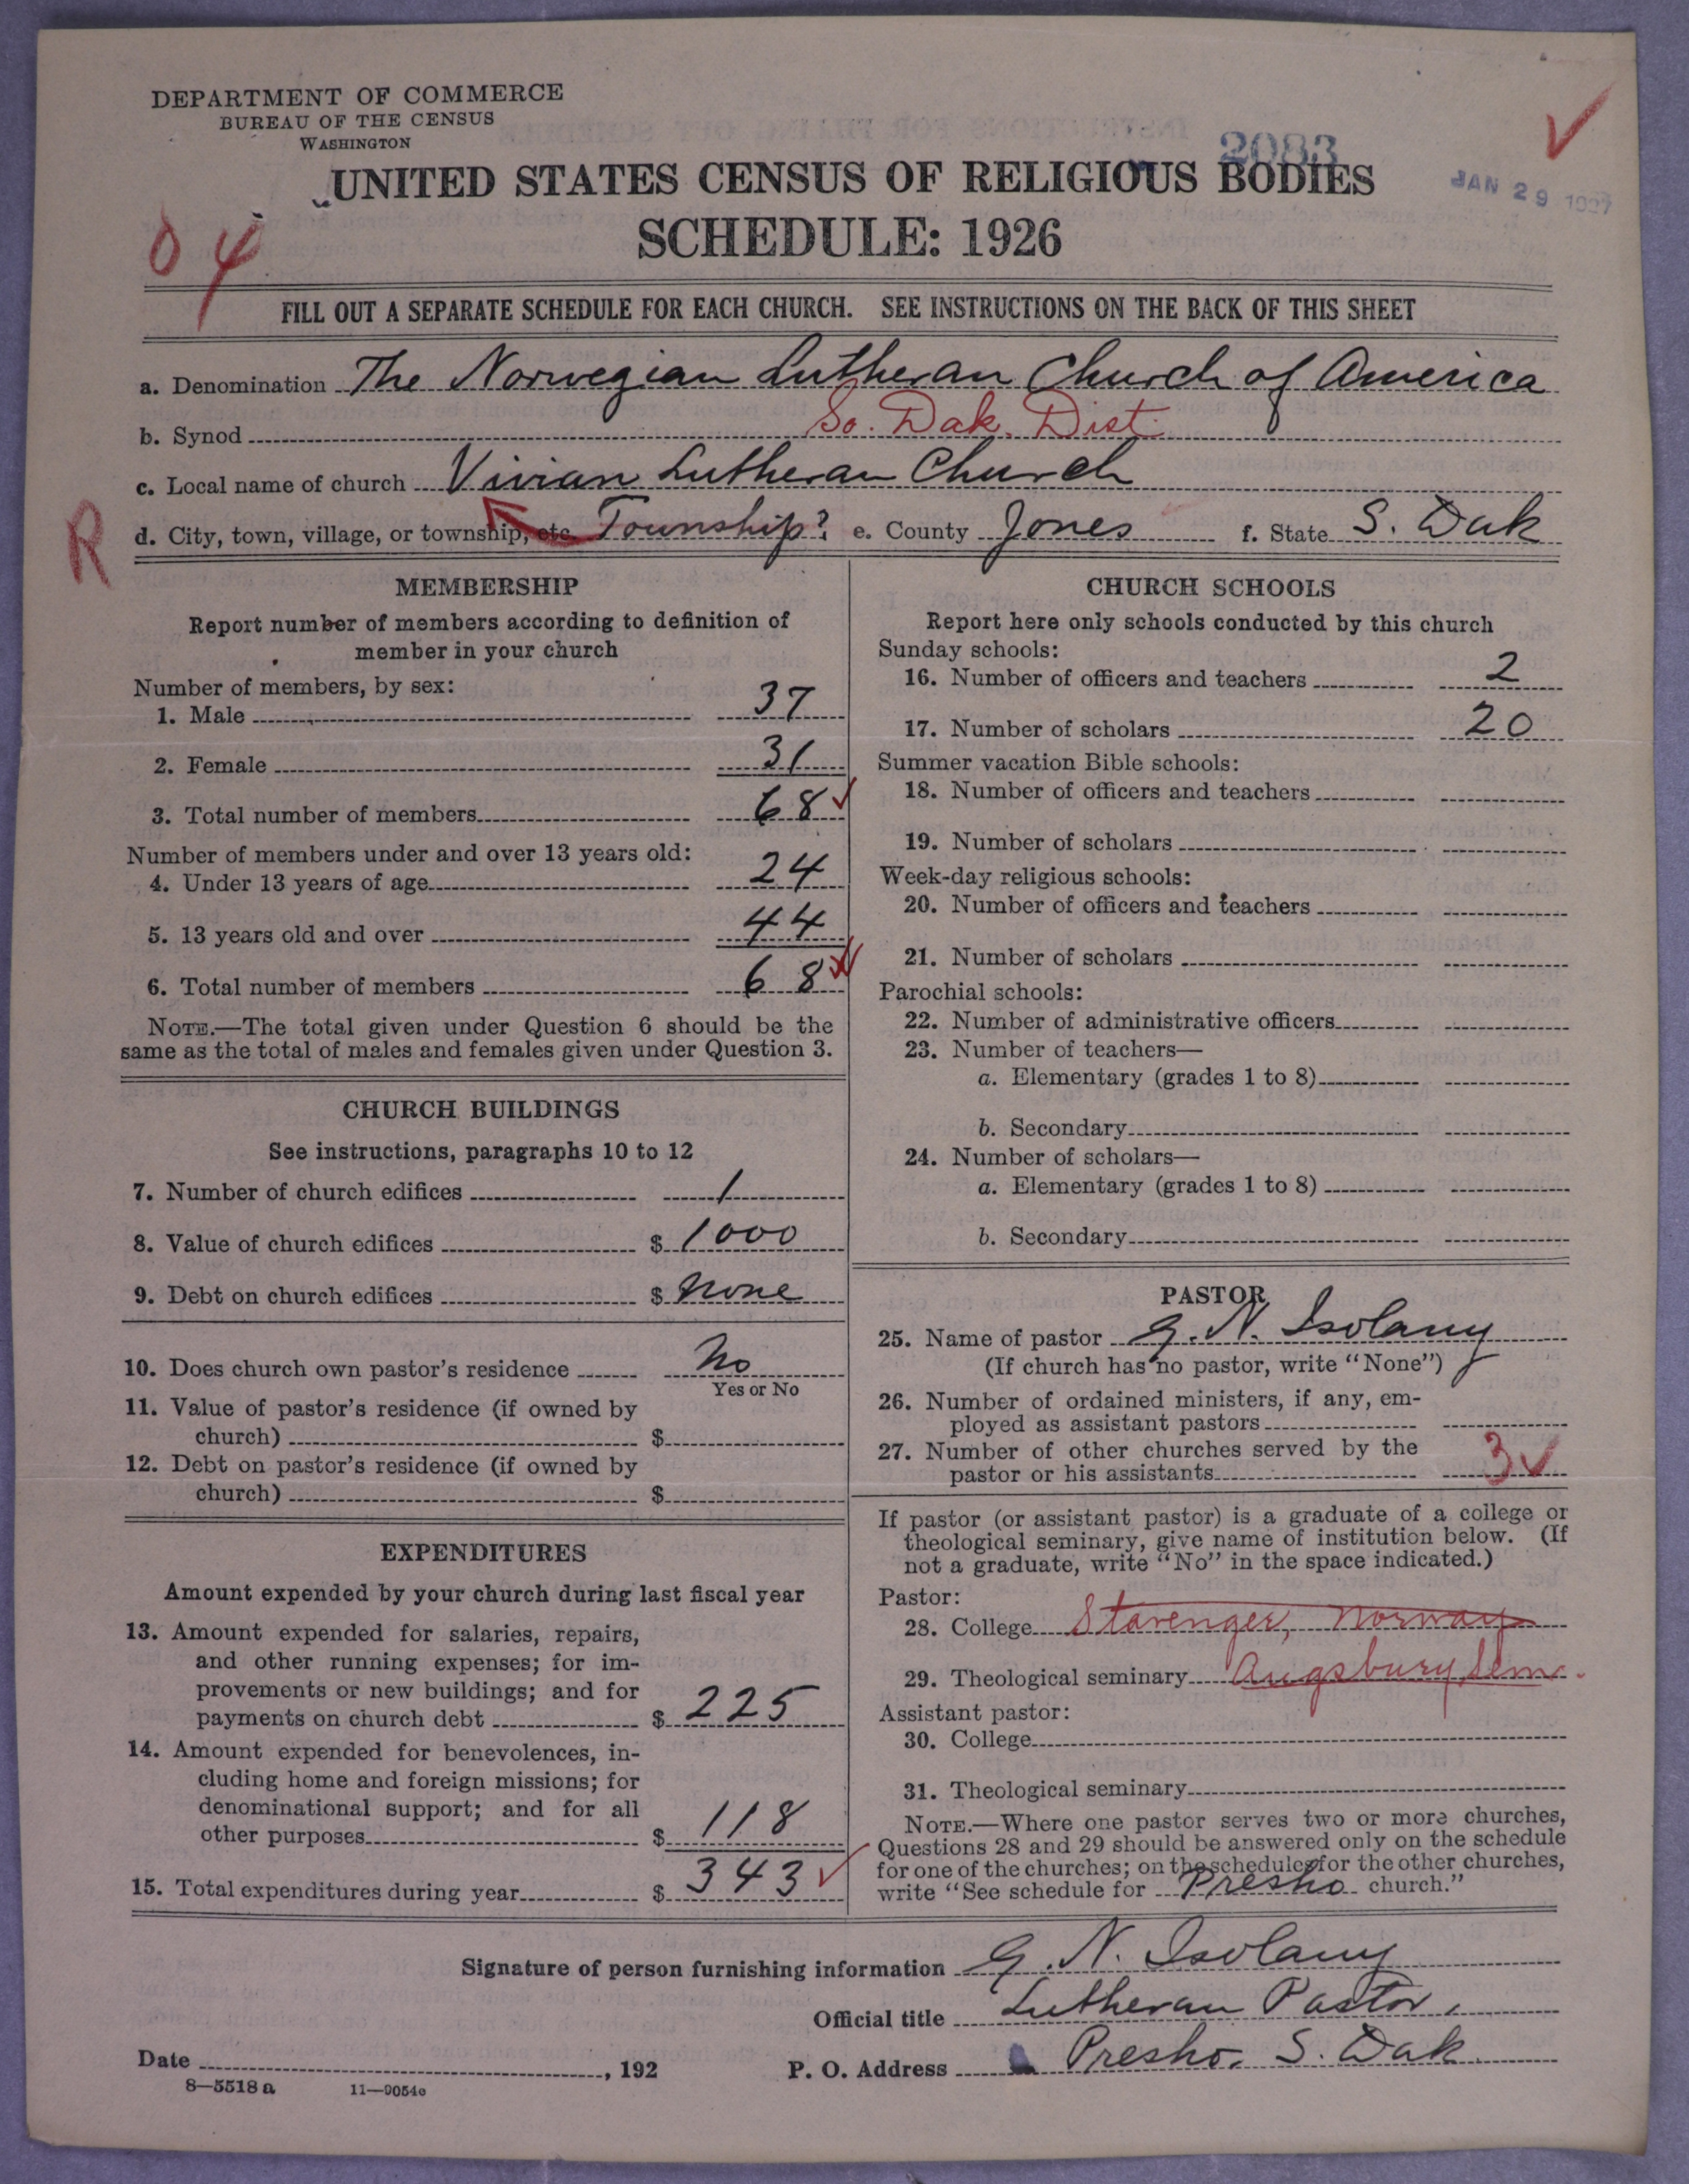 DEPARTMENT OF COMMERCE
BUREAU OF THE CENSUS
WASHINGTON
2083
JAN 29 1927
UNITED STATES CENSUS OF RELIGIOUS BODIES
SCHEDULE: 1926
04
FILL OUT A SEPARATE SCHEDULE FOR EACH CHURCH. SEE INSTRUCTIONS ON THE BACK OF THIS SHEET
a. Denomination The Norwegian Lutheran Church of America
b. Synod So. Dak. Dist.
c. Local name of church Vivian Lutheran Church
R
d. City, town, village, or township, etc. Township? e. County Jones f. State S. Dak
MEMBERSHIP
Report number of members according to definition of
member in your church
Number of members, by sex:
1. Male 37
2. Female 31
3. Total number of members 68
Number of members under and over 13 years old:
4. Under 13 years of age 24
5. 13 years old and over 44
6. Total number of members 68
NOTE.—The total given under Question 6 should be the
same as the total of males and females given under Question 3.
CHURCH BUILDINGS
See instructions, paragraphs 10 to 12
7. Number of church edifices 1
8. Value of church edifices $ 1000
9. Debt on church edifices $ none
10. Does church own pastor's residence No
Yes or No
11. Value of pastor's residence (if owned by
church) $
12. Debt on pastor's residence (if owned by
church) $
EXPENDITURES
Amount expended by your church during last fiscal year
13. Amount expended for salaries, repairs,
and other running expenses; for im-
provements or new buildings; and for
payments on church debt $ 225
14. Amount expended for benevolences, in-
cluding home and foreign missions; for
denominational support; and for all
other purposes $ 118
15. Total expenditures during year $ 343
CHURCH SCHOOLS
Report here only schools conducted by this church
Sunday schools:
16. Number of officers and teachers 2
17. Number of scholars 20
Summer vacation Bible schools:
18. Number of officers and teachers
19. Number of scholars
Week-day religious schools:
20. Number of officers and teachers
21. Number of scholars
Parochial schools:
22. Number of administrative officers
23. Number of teachers—
a. Elementary (grades 1 to 8)
b. Secondary
24. Number of scholars—
a. Elementary (grades 1 to 8)
b. Secondary
PASTOR
25. Name of pastor G. N. Isolany
(If church has no pastor, write "None")
26. Number of ordained ministers, if any, em-
ployed as assistant pastors
27. Number of other churches served by the
pastor or his assistants 3
If pastor (or assistant pastor) is a graduate of a college or
theological seminary, give name of institution below. (If
not a graduate, write "No" in the space indicated.)
Pastor:
28. College Stavenger, Norway
29. Theological seminary Augsburg Sem.
Assistant pastor:
30. College
31. Theological seminary
NOTE.—Where one pastor serves two or more churches,
Questions 28 and 29 should be answered only on the schedule
for one of the churches; on the schedules for the other churches,
write "See schedule for Presho church."
Signature of person furnishing information G. N. Isolany
Official title Lutheran Pastor.
Date , 192 P. O. Address Presho. S. Dak
8—5518 a 11—9054c